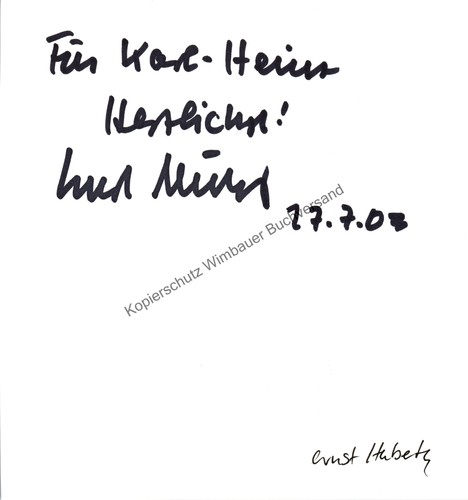 Für Karl-Heinz
Herzlichst!
27.7.07
Kopierschutz Wimbauer Buchversand
Ernst